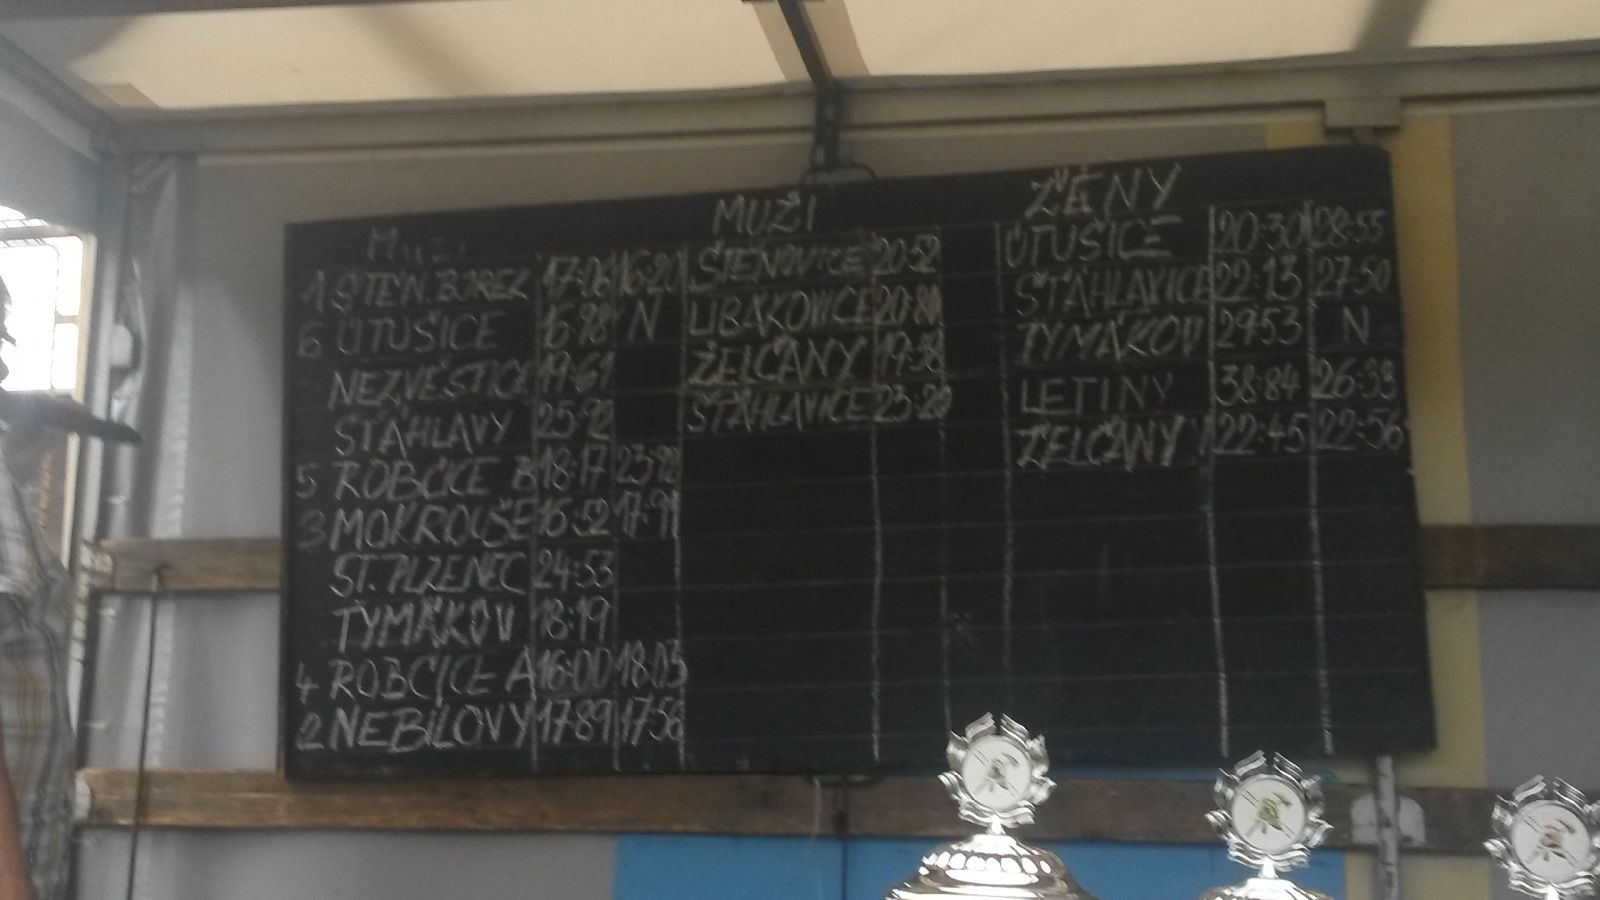 MUŽI
1 ŠTĚN. BOREK 17:06 16:20
6 ÚTUŠICE 16:98 N
NEZVĚSTICE 19:61
ŠŤÁHLAVY 25:92
5 ROBČICE B 18:17 23:92
3 MOKROUŠE 16:52 17:91
ST. PLZENEC 24:53
TYMÁKOV 18:19
4 ROBČICE A 16:00 18:03
2 NEBÍLOVY 17:89 17:56
MUŽI
ŠTĚNOVICE 20:52
LIBÁKOVICE
ŽELČANY 19:38
ŠŤÁHLAVICE 23:20
ŽENY
ÚTUŠICE 20:30 28:55
ŠŤÁHLAVICE 22:13 27:50
TYMÁKOV 29:53 N
LETINY 38:84 26:33
ŽELČANY 22:45 22:56